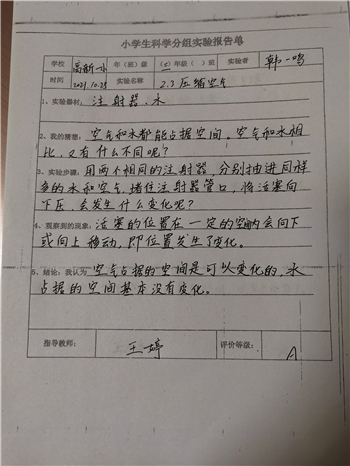 小学生科学分组实验报告单
学校 高新一小 年（班）级 （三）年级（ ）班 实验者 韩一鸣
时间 2021.10.25 实验名称 2.3压缩空气
1、实验器材：注射器、水
2、我的猜想：空气和水都能占据空间。空气和水相
比，又有什么不同呢？
3、实验步骤：用两个相同的注射器，分别抽进同样
多的水和空气，堵住注射器管口，将活塞向
下压，会发生什么变化呢？
4、观察到的现象：活塞的位置在一定的空间内会向下
或向上移动，即位置发生了变化。
5、结论：我认为 空气占据的空间是可以变化的，水
占据的空间基本没有变化。
指导教师： 王婷 评价等级： A